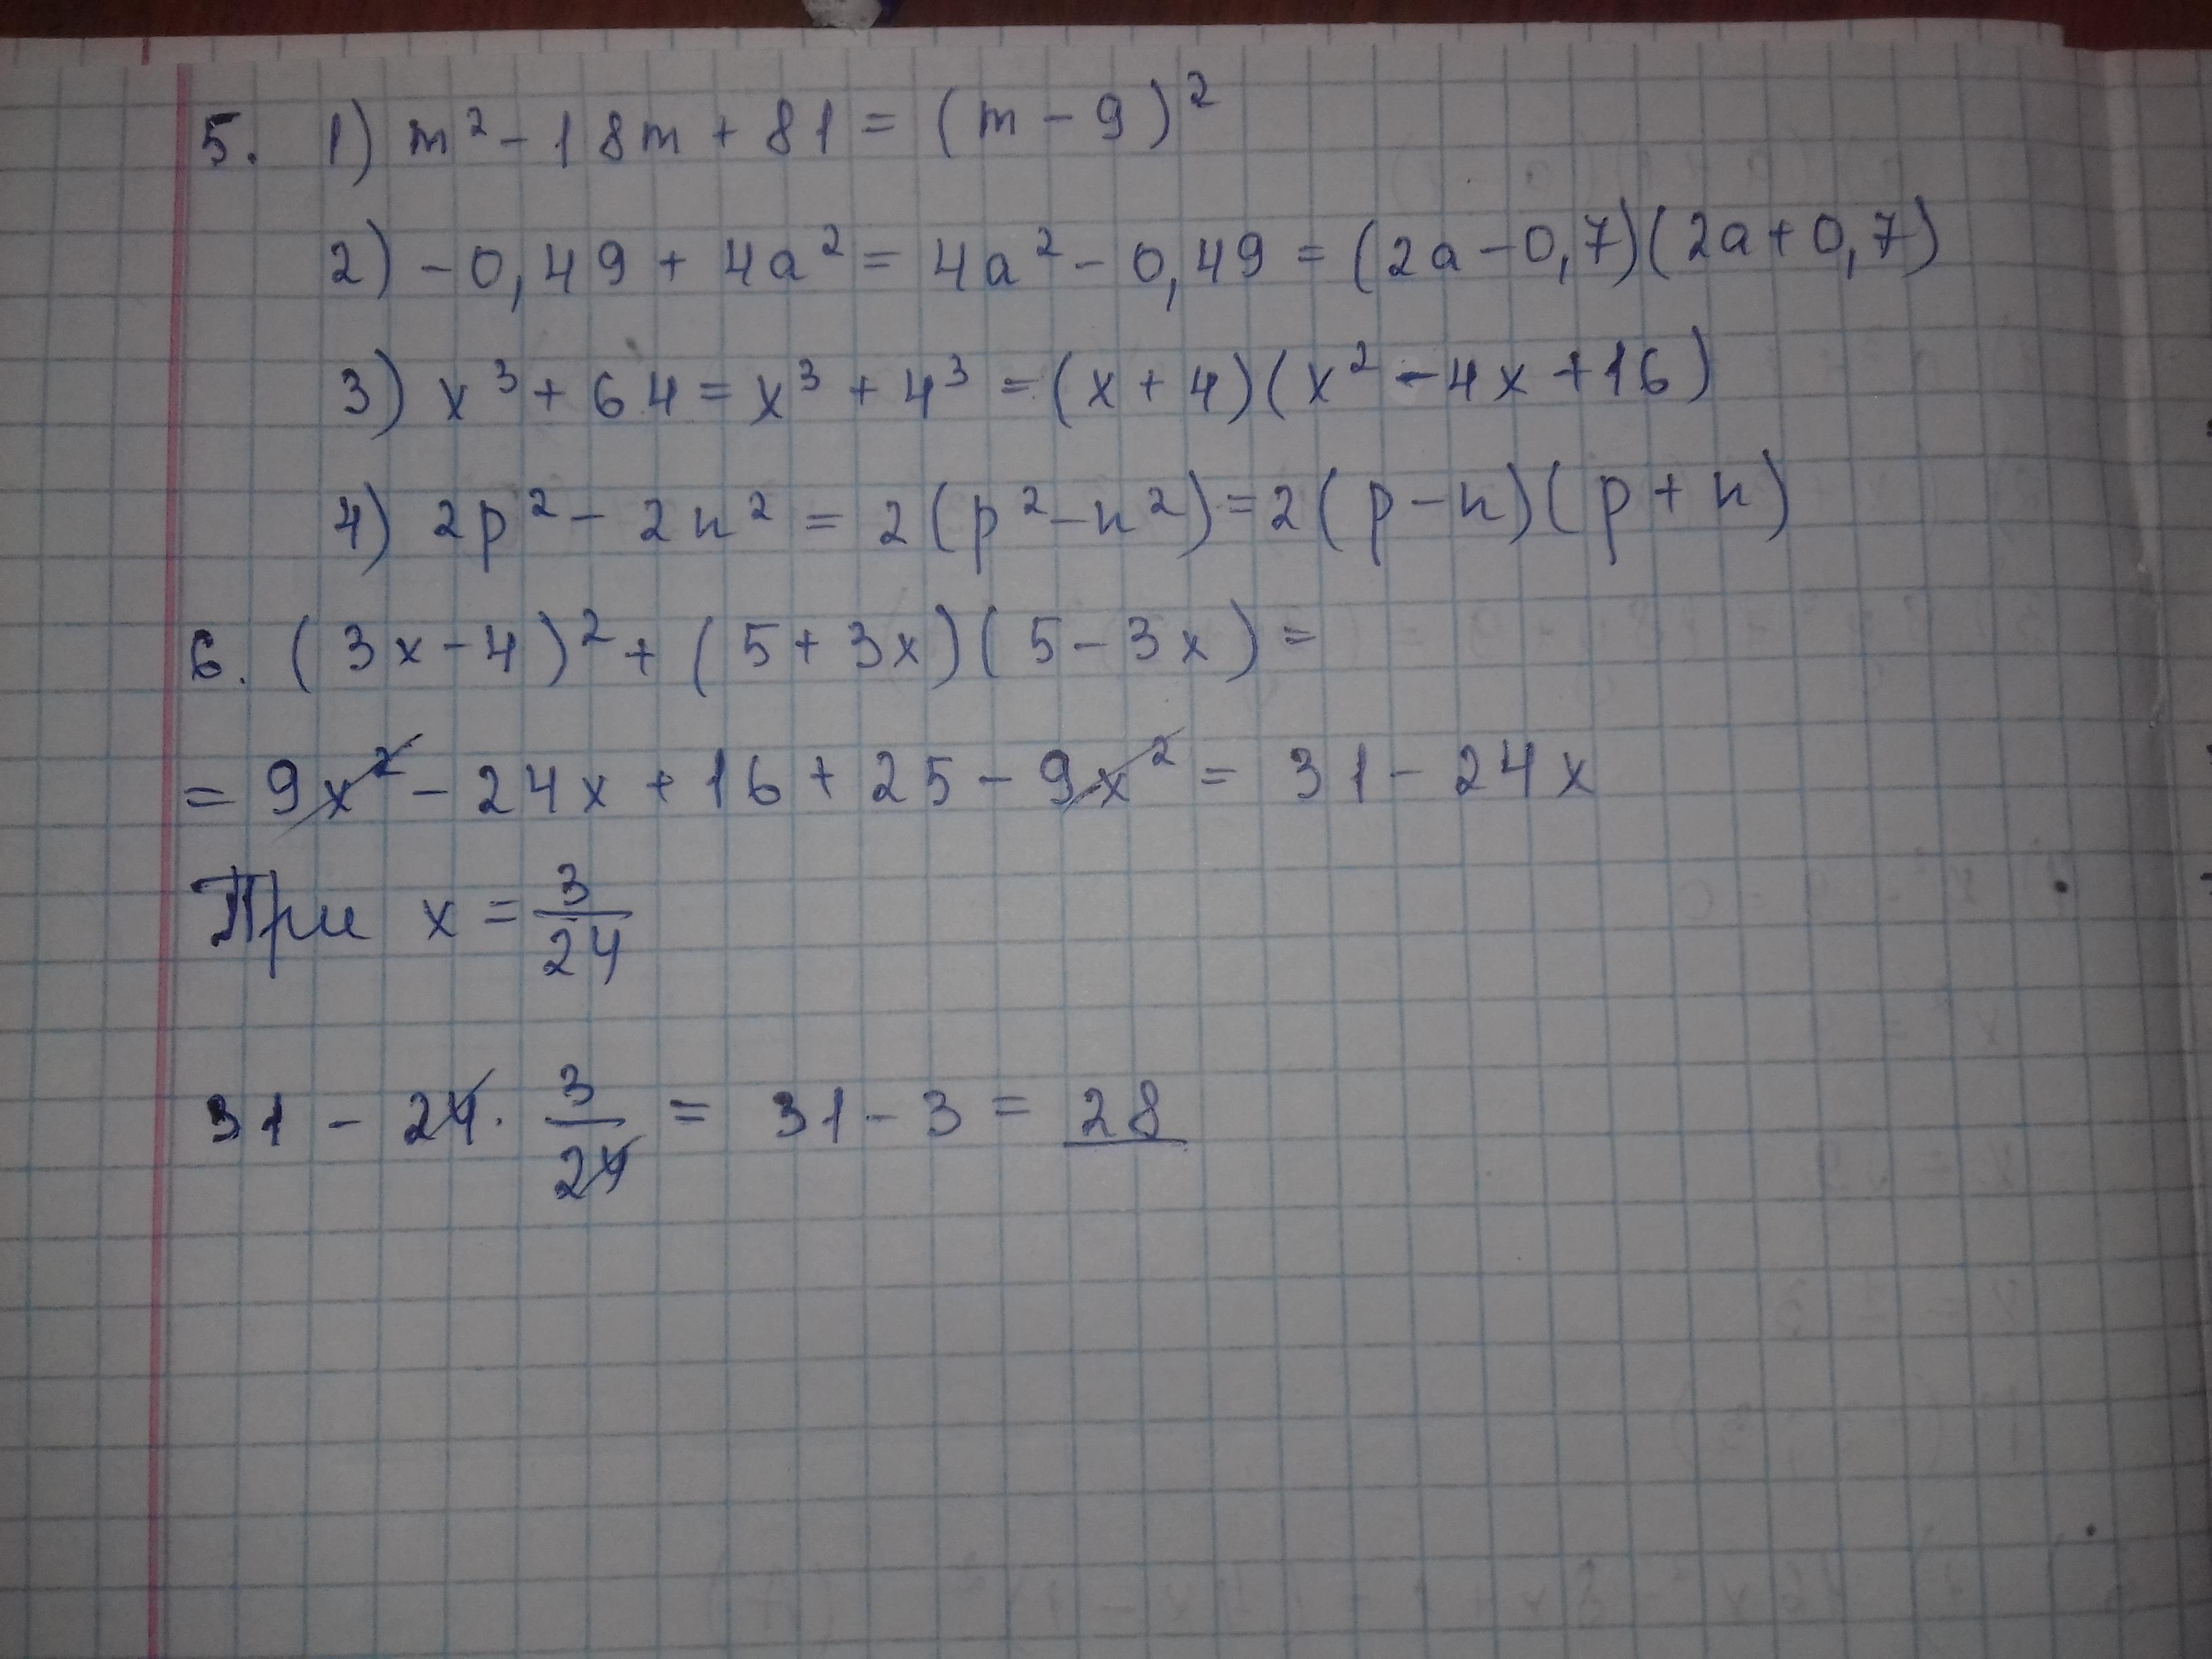 5. 1) m² - 18m + 81 = (m - 9)²
2) -0,49 + 4a² = 4a² - 0,49 = (2a - 0,7)(2a + 0,7)
3) x³ + 64 = x³ + 4³ = (x + 4)(x² - 4x + 16)
4) 2p² - 2n² = 2(p² - n²) = 2(p - n)(p + n)
6. (3x - 4)² + (5 + 3x)(5 - 3x) =
= 9x² - 24x + 16 + 25 - 9x² = 31 - 24x
При x = 3/24
31 - 24 · 3/24 = 31 - 3 = 28